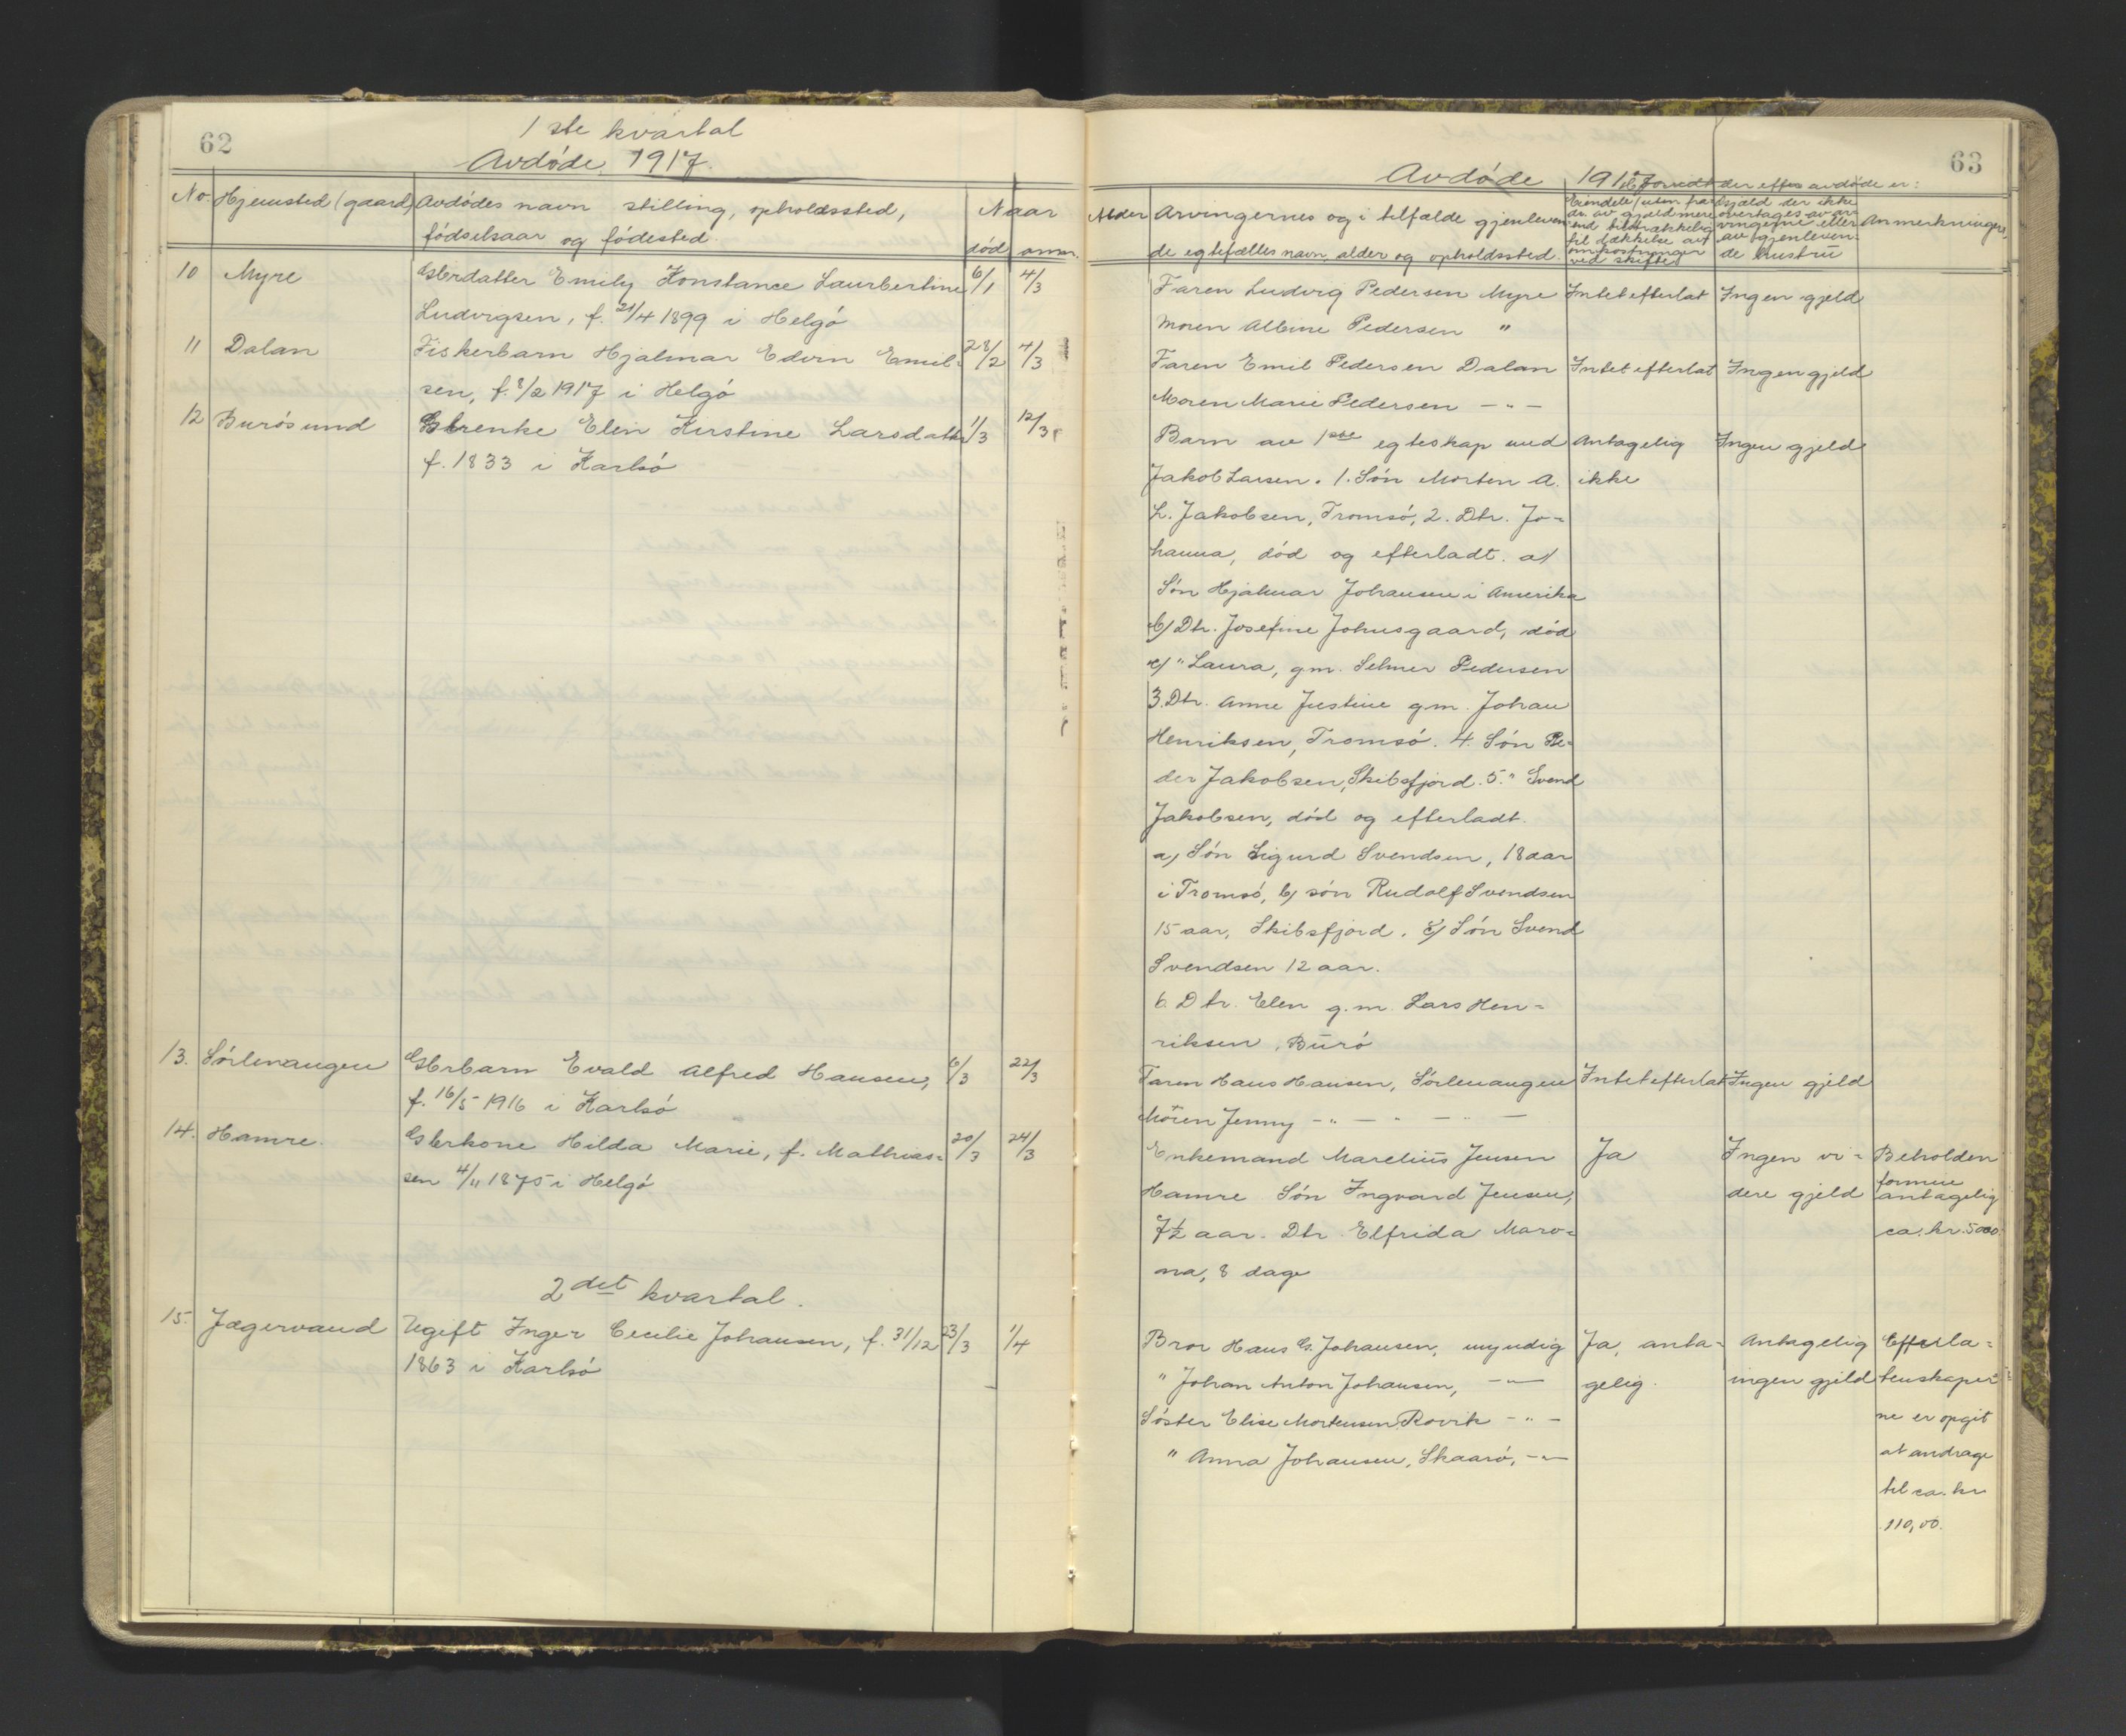 62
1 ste kvartal
Avdøde 1917.
No. Hjemsted (gaard) Avdødes navn stilling, opholdssted, Naar
fødselsaar og fødested. død anm.
10 Myre Gbrdatter Emily Konstance Laurbertine 6/1 4/3
Ludvigsen, f. 21/4 1899 i Helgø
11 Dalan Fiskerbarn Hjalmar Edvin Emil- 28/2 4/3
sen, f. 8/2 1917 i Helgø
12 Burøsund Gbrenke Elen Kirstine Larsdatter 1/3 12/3
f. 1833 i Karlsø
13. Sørlenangen Gbrbarn Evald Alfred Hansen, 6/3 22/3
f. 16/5 1916 i Karlsø
14. Hamre. Gbrkone Hilda Marie, f. Mathias- 20/3 24/3
sen 4/11 1875 i Helgø
2det kvartal.
15. Jægervand Ugift Inger Cecilie Johansen, f. 31/12 23/3 1/4
1863 i Karlsø
63
Avdøde 1917
der efter avdøde er:
Alder Arvingernes og i tilfælde gjenleven-
de egtefælles navn, alder og opholdssted.
Eiendele (utm. fra-
dr. av gjæld mere
end tilstrækkelig
til dækkelse av
omkostninger
ved skifte
Gjæld der ikke
overtages av ar-
vingerne eller
av gjenleven-
de hustru
Anmerkninger.
Faren Ludvig Pedersen Myre Intet efterlat Ingen gjeld
Moren Albine Pedersen "
Faren Emil Pedersen Dalan Intet efterlat Ingen gjeld
Moren Marie Pedersen - " -
Barn av 1ste egteskap med Antagelig Ingen gjeld
Jakob Larsen. 1. Søn Morten A. ikke
L. Jakobsen, Tromsø, 2. Dtr. Jo-
hanna, død og efterladt. a/
Søn Hjalmar Johansen i Amerika
b/ Dtr. Josefine Johnsgaard, død
c/ " Laura, gm. Selmer Pedersen
3. Dtr. Anne Justine gm. Johan
Henriksen, Tromsø. 4. Søn Pe-
der Jakobsen, Skibsfjord. 5. " Svend
Jakobsen, død og efterladt.
a/ Søn Sigurd Svendsen, 18 aar
i Tromsø, b/ søn Rudolf Svendsen
15 aar, Skibsfjord. c/ Søn Svend
Svendsen 12 aar.
6. Dtr. Elen g.m. Lars Hen-
riksen, Burø
Faren Hans Hansen, Sørlenangen Intet efterlat Ingen gjeld
Moren Jenny - " - " - " -
Enkemand Marelius Jensen Ja Ingen vi- Beholden
formue
Hamre. Søn Ingvard Jensen, dere gjeld antagelig
7½ aar. Dtr. Elfrida Maro- ca. kr. 5000.
na, 8 dage
Bror Hans G. Johansen, myndig Ja, anta- Antagelig Efterla-
" Johan Anton Johansen, - " - gelig. ingen gjeld tenskaper-
Søster Elise Mortensen Rovik - " - ne er opgit
" Anna Johansen, Skaarø, - " - at andrage
til ca. kr.
110,00.